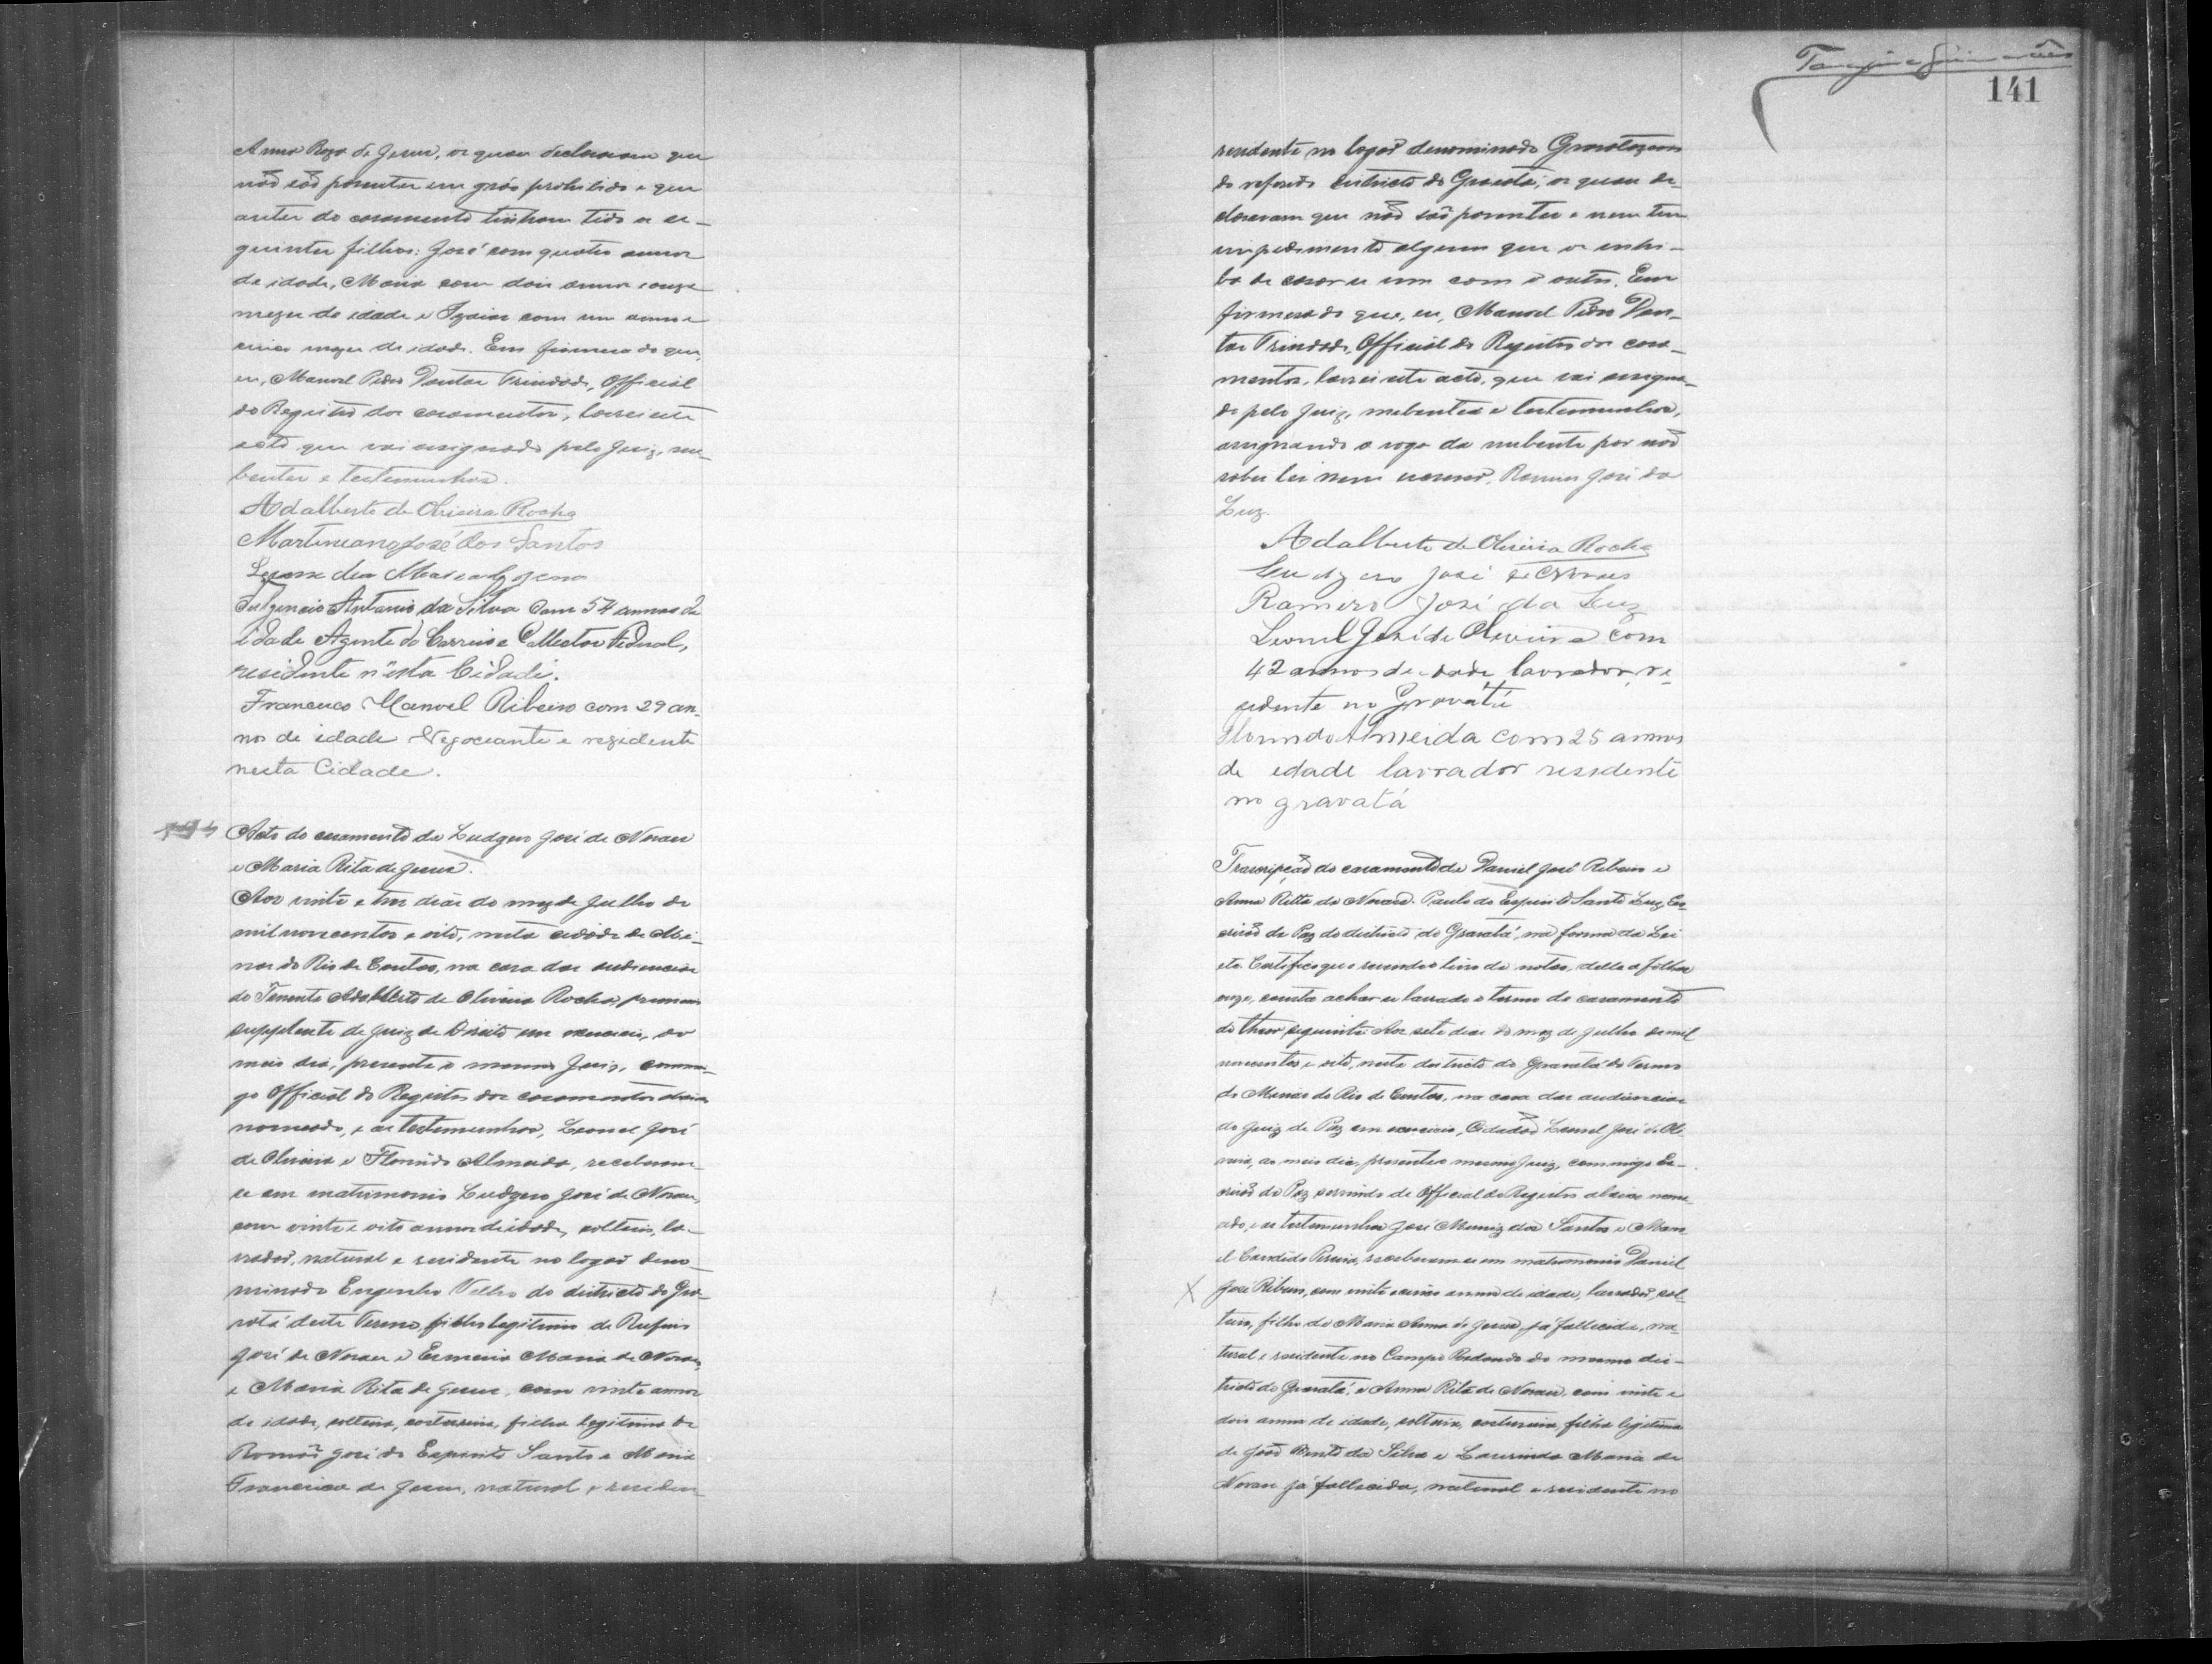 Anna Roza de Jesus, os quaes declararam que
não são parentes em gráo prohibido e que
antes do casamento tinham tido os se-
guintes filhos: José com quatro annos
de idade, Maria com dois annos e onze
mezes de idade e Izaias com um anno e
cinco mezes de idade. Em firmeza do que,
eu, Manoel Pedro Dantas Trindade, Official
do Registro dos casamentos, lavrei este
acto que vai assignado pelo Juiz, nu-
bentes e testemunhas.
Adalberto de Oliveira Rocha
Martiniano José dos Santos
Maria
Fulgencio Antonio da Silva com 54 annos de
idade Agente do Correio e Collector Federal,
residente n'esta Cidade.
Francisco Manoel Ribeiro com 29 an-
nos de idade Negociante e rezidente
nesta Cidade.
Acto do casamento de Ludgero José de Novaes
e Maria Rita de Jesus.
Aos vinte e tres dias do mez de Julho de
mil novecentos e oito, nesta cidade de Mi-
nas do Rio de Contas, na casa das audiencias
do Tenente Adalberto de Oliveira Rocha, primeiro
supplente de Juiz de Direito em exercicio, ao
meio dia, presente o mesmo Juiz, commi-
go Official do Registro dos casamentos abaixo
nomeado, e as testemunhas, Leonel José
de Oliveira e Florindo Almeida, receberam-
se em matrimonio Ludgero José de Novaes,
com vinte e oito annos de idade, solteiro, la-
vrador, natural e residente no logar deno-
minado Engenho Velho do districto do Gra-
vatá deste Termo, filho legitimo de Rufino
José de Novaes e Maria de Novaes,
e Maria Rita de Jesus, com vinte annos
de idade, solteira, costureira, filha legitima de
Romão José do Espirito Santo e Maria
Francisca de Jesus, natural e residen-
141
residente no logar denominado
do referido districto do Gravatá; os quaes de-
clararam que não são parentes e nem tem
impedimento algum que os inhi-
ba de casar-se um com o outro. Em
firmesa do que, eu, Manoel Pedro Dan-
tas Trindade, Official do Registro dos casa-
mentos, lavrei este acto, que vai assigna-
do pelo Juiz, nubentes e testemunhas,
assignando a rogo da nubente por não
saber ler nem escrever, Ramiro José da
Luz.
Adalberto de Oliveira Rocha
Ludgero José de Novaes
Ramero José da Luz
Leonel José de Oliveira com
42 annos de idade lavrador, re
sidente no Gravatá
Florindo Almeida com 25 annos
de edade lavrador ressidente
no gravatá
Transcripção do casamento de Daniel José Ribeiro e
Anna Ritta de Novaes. Paulo do Espirito Santo Luz, Es-
crivão de Paz do districto do Gravatá, na forma da Lei
etc. Certifico que revendo o livro de notas, delle a folhas
onze, consta achar-se lavrado o termo de casamento
do theor seguinte: Aos sete dias do mez de Julho de mil
novecentos e oito, neste districto do Gravatá do Termo
de Minas do Rio de Contas, na casa das audiencias
do Juiz de Paz em exercicio, Cidadão Leonel José de Oli
veira, ao meio dia, presente o mesmo Juiz, commigo Es-
crivão de Paz servindo de Official do Registro abaixo nome-
ado, e as testemunhas José Muniz dos Santos e Mano
el Candido Pereira, receberam-se em matrimonio Daniel
José Ribeiro, com vinte e cinco annos de idade, lavrador, sol-
teiro, filho de Maria Anna de Jesus, já fallecida, na-
tural e residente no Campo Redondo do mesmo dis-
tricto do Gravatá, e Anna Rita de Novaes, com vinte e
dois annos de idade, solteira, costureira, filha legitima
de João Bento da Silva e Laurinda Maria de
Novaes já fallecida, natural e residente no